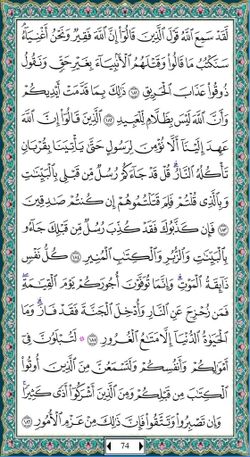 لَّقَدْ سَمِعَ ٱللَّهُ قَوْلَ ٱلَّذِينَ قَالُوٓا۟ إِنَّ ٱللَّهَ فَقِيرٌ وَنَحْنُ أَغْنِيَآءُ
سَنَكْتُبُ مَا قَالُوا۟ وَقَتْلَهُمُ ٱلْأَنۢبِيَآءَ بِغَيْرِ حَقٍّ وَنَقُولُ
ذُوقُوا۟ عَذَابَ ٱلْحَرِيقِ ١٨١ ذَٰلِكَ بِمَا قَدَّمَتْ أَيْدِيكُمْ
وَأَنَّ ٱللَّهَ لَيْسَ بِظَلَّامٍ لِّلْعَبِيدِ ١٨٢ ٱلَّذِينَ قَالُوٓا۟ إِنَّ ٱللَّهَ
عَهِدَ إِلَيْنَآ أَلَّا نُؤْمِنَ لِرَسُولٍ حَتَّىٰ يَأْتِيَنَا بِقُرْبَانٍ
تَأْكُلُهُ ٱلنَّارُ ۗ قُلْ قَدْ جَآءَكُمْ رُسُلٌ مِّن قَبْلِى بِٱلْبَيِّنَٰتِ
وَبِٱلَّذِى قُلْتُمْ فَلِمَ قَتَلْتُمُوهُمْ إِن كُنتُمْ صَٰدِقِينَ
١٨٣ فَإِن كَذَّبُوكَ فَقَدْ كُذِّبَ رُسُلٌ مِّن قَبْلِكَ جَآءُو
بِٱلْبَيِّنَٰتِ وَٱلزُّبُرِ وَٱلْكِتَٰبِ ٱلْمُنِيرِ ١٨٤ كُلُّ نَفْسٍ
ذَآئِقَةُ ٱلْمَوْتِ ۗ وَإِنَّمَا تُوَفَّوْنَ أُجُورَكُمْ يَوْمَ ٱلْقِيَٰمَةِ ۖ
فَمَن زُحْزِحَ عَنِ ٱلنَّارِ وَأُدْخِلَ ٱلْجَنَّةَ فَقَدْ فَازَ ۗ وَمَا
ٱلْحَيَوٰةُ ٱلدُّنْيَآ إِلَّا مَتَٰعُ ٱلْغُرُورِ ١٨٥ ۞ لَتُبْلَوُنَّ فِىٓ
أَمْوَٰلِكُمْ وَأَنفُسِكُمْ وَلَتَسْمَعُنَّ مِنَ ٱلَّذِينَ أُوتُوا۟
ٱلْكِتَٰبَ مِن قَبْلِكُمْ وَمِنَ ٱلَّذِينَ أَشْرَكُوٓا۟ أَذًى كَثِيرًا ۚ
وَإِن تَصْبِرُوا۟ وَتَتَّقُوا۟ فَإِنَّ ذَٰلِكَ مِنْ عَزْمِ ٱلْأُمُورِ ١٨٦
74